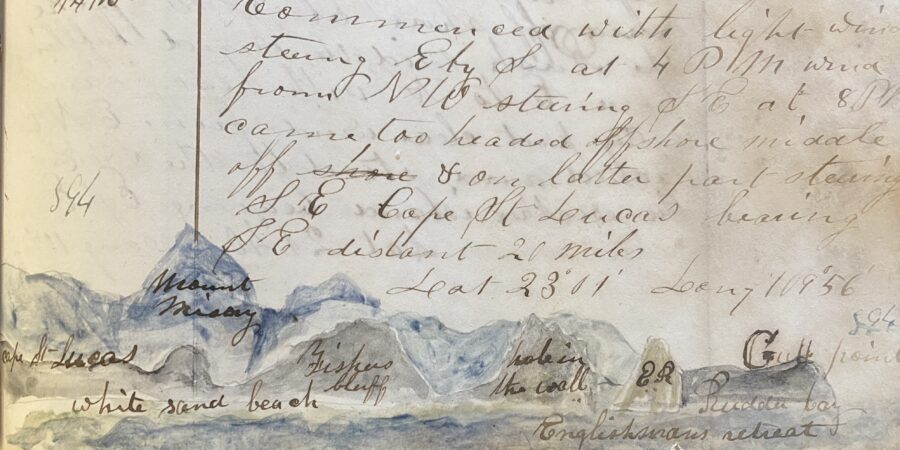 Commenced with light wind
steering E by S at 4 PM wind
from NW steering SE at 8 PM
came too headed offshore middle
off shore & on latter part steering
594
SE Cape St Lucas bearing
SE distant 20 miles
Lat 23°01' Long 109°56'
Mount
594
Cape St Lucas
bluff
hole in
the wall
E.R
Gull point
white sand beach
Rudder bay
Englishmans retreat